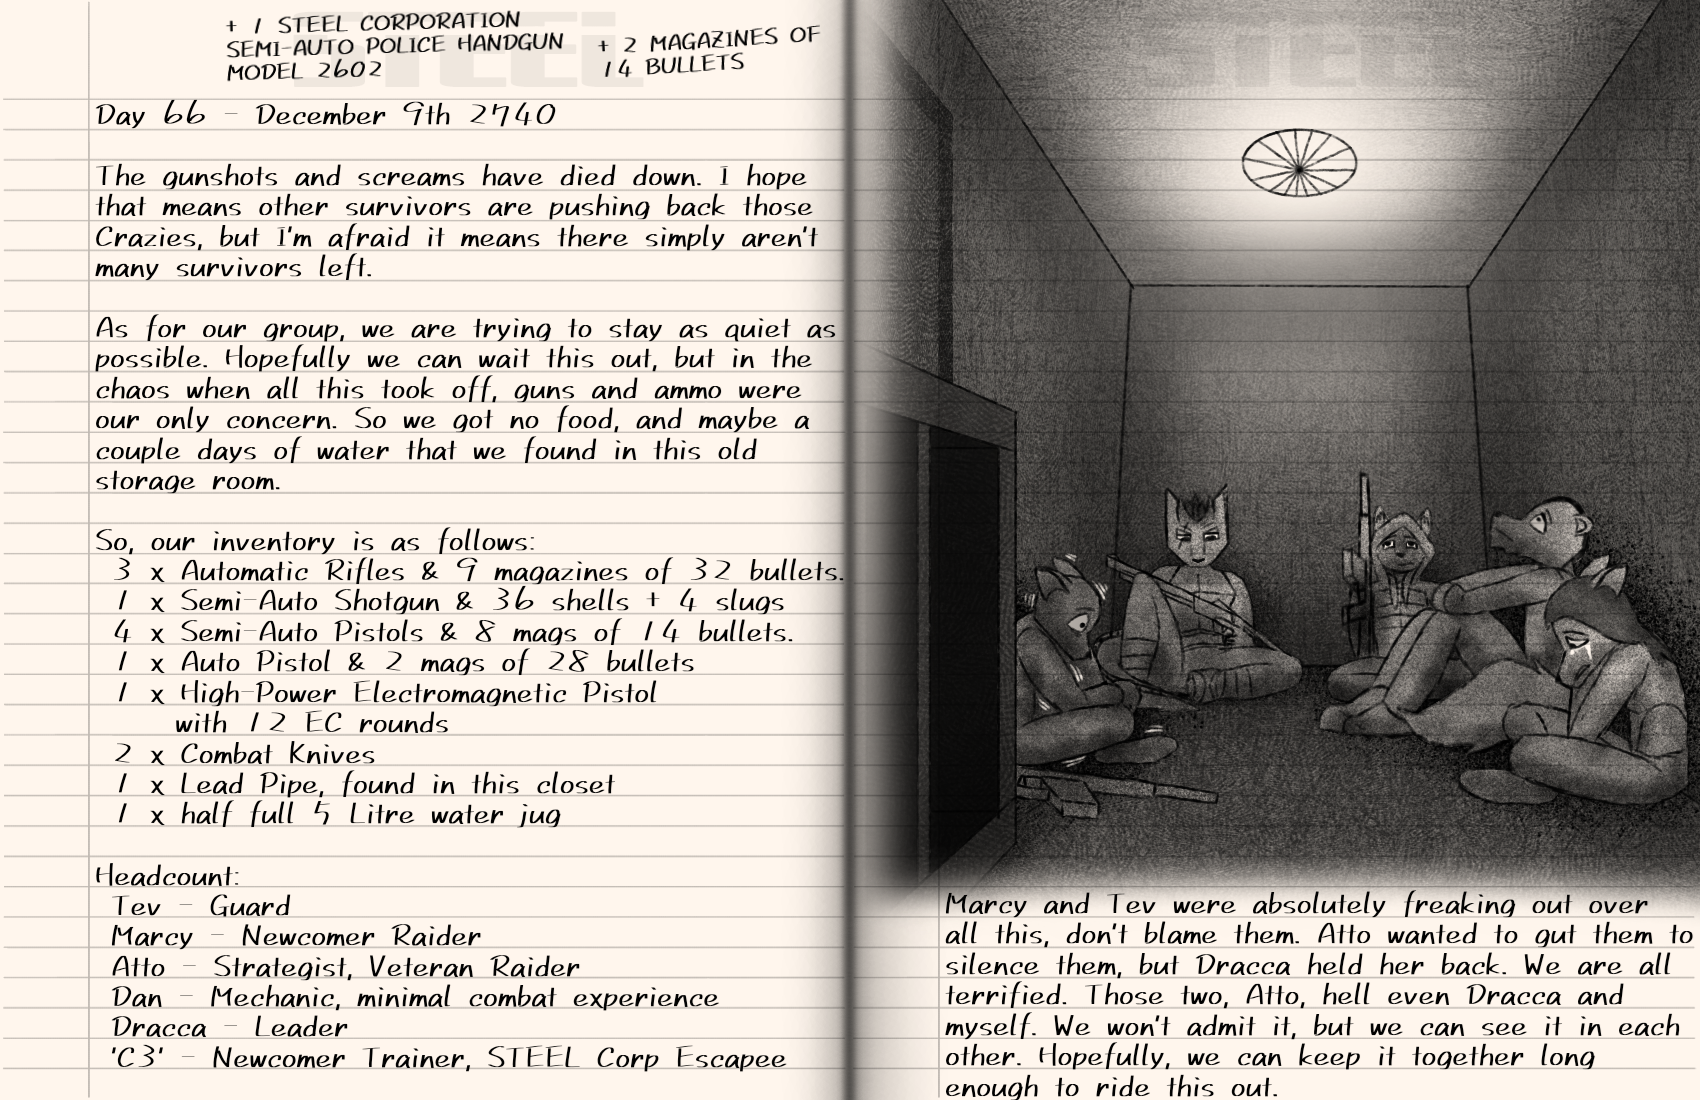 + 1 STEEL CORPORATION
SEMI-AUTO POLICE HANDGUN
MODEL 2602
+ 2 MAGAZINES OF
14 BULLETS
STEEL
Day 66 - December 9th 2740
The gunshots and screams have died down. I hope
that means other survivors are pushing back those
Crazies, but I'm afraid it means there simply aren't
many survivors left.
As for our group, we are trying to stay as quiet as
possible. Hopefully we can wait this out, but in the
chaos when all this took off, guns and ammo were
our only concern. So we got no food, and maybe a
couple days of water that we found in this old
storage room.
So, our inventory is as follows:
3 x Automatic Rifles & 9 magazines of 32 bullets.
1 x Semi-Auto Shotgun & 36 shells + 4 slugs
4 x Semi-Auto Pistols & 8 mags of 14 bullets.
1 x Auto Pistol & 2 mags of 28 bullets
1 x High-Power Electromagnetic Pistol
with 12 EC rounds
2 x Combat Knives
1 x Lead Pipe, found in this closet
1 x half full 5 Litre water jug
Headcount:
Tev - Guard
Marcy - Newcomer Raider
Atto - Strategist, Veteran Raider
Dan - Mechanic, minimal combat experience
Dracca - Leader
'C3' - Newcomer Trainer, STEEL Corp Escapee
STEEL
Marcy and Tev were absolutely freaking out over
all this, don't blame them. Atto wanted to gut them to
silence them, but Dracca held her back. We are all
terrified. Those two, Atto, hell even Dracca and
myself. We won't admit it, but we can see it in each
other. Hopefully, we can keep it together long
enough to ride this out.